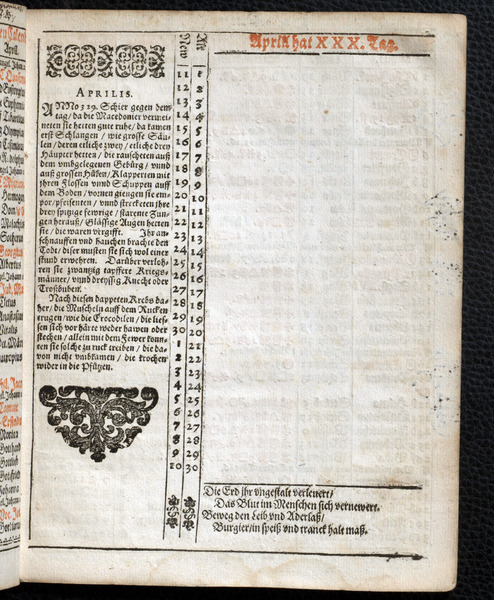 April hat XXX. Tag.
New
Alt
APRILIS.
ANno 319. Schier gegen dem
tag/ da die Macedonier vermei-
neten sie hetten gute ruhe/ da kamen
erst Schlangen / wie grosse Säu-
len / deren etliche zwey / etliche drey
Häupter hetten / die rauscheten auß
dem umbgelegenen Gebürg / vnnd
auß grossen Hülsen / Klapperten mit
ihren Flossen vnnd Schuppen auff
dem Boden / vornen giengen sie em-
por/pfeisenten / vnnd streckten ihre
drey spitzige fewrige / starente Zun-
gen herauß/ Glässige Augen hetten
sie / die waren vergifft. Ihr an-
schnauffen vnd hauchen brachte den
Todt/ diser musten sie sich wol einer
stund erwehren. Darüber verloh-
ren sie zwanzig tapffere Kriegs-
männer / vnnd dreyssig Knecht oder
Troßbuben.
Nach disen dappeten Krebs da-
her/ die Muscheln auff dem Rucken
trugen / wie die Crocodilen / die lies-
sen sich vor härte weder hawen oder
stechen / allein mit dem Fewer kon-
ten sie solche zu ruck treiben / die da-
von nicht umbkamen / die krochen
wider in die Pfützen.
11 1
12 2
13 3
14 4
15 5
16 6
17 7
18 8
19 9
20 10
21 11
22 12
23 13
24 14
25 15
26 16
27 17
28 18
29 19
30 20
1 21
2 22
3 23
4 24
5 25
6 26
7 27
8 28
9 29
10 30
Die Erd ihr vngestalt verleurt/
Das Blut im Menschen sich vernewert.
Beweg den Leib vnd Aderlaß/
Burgier/in speiß vnd tranck halt maß.